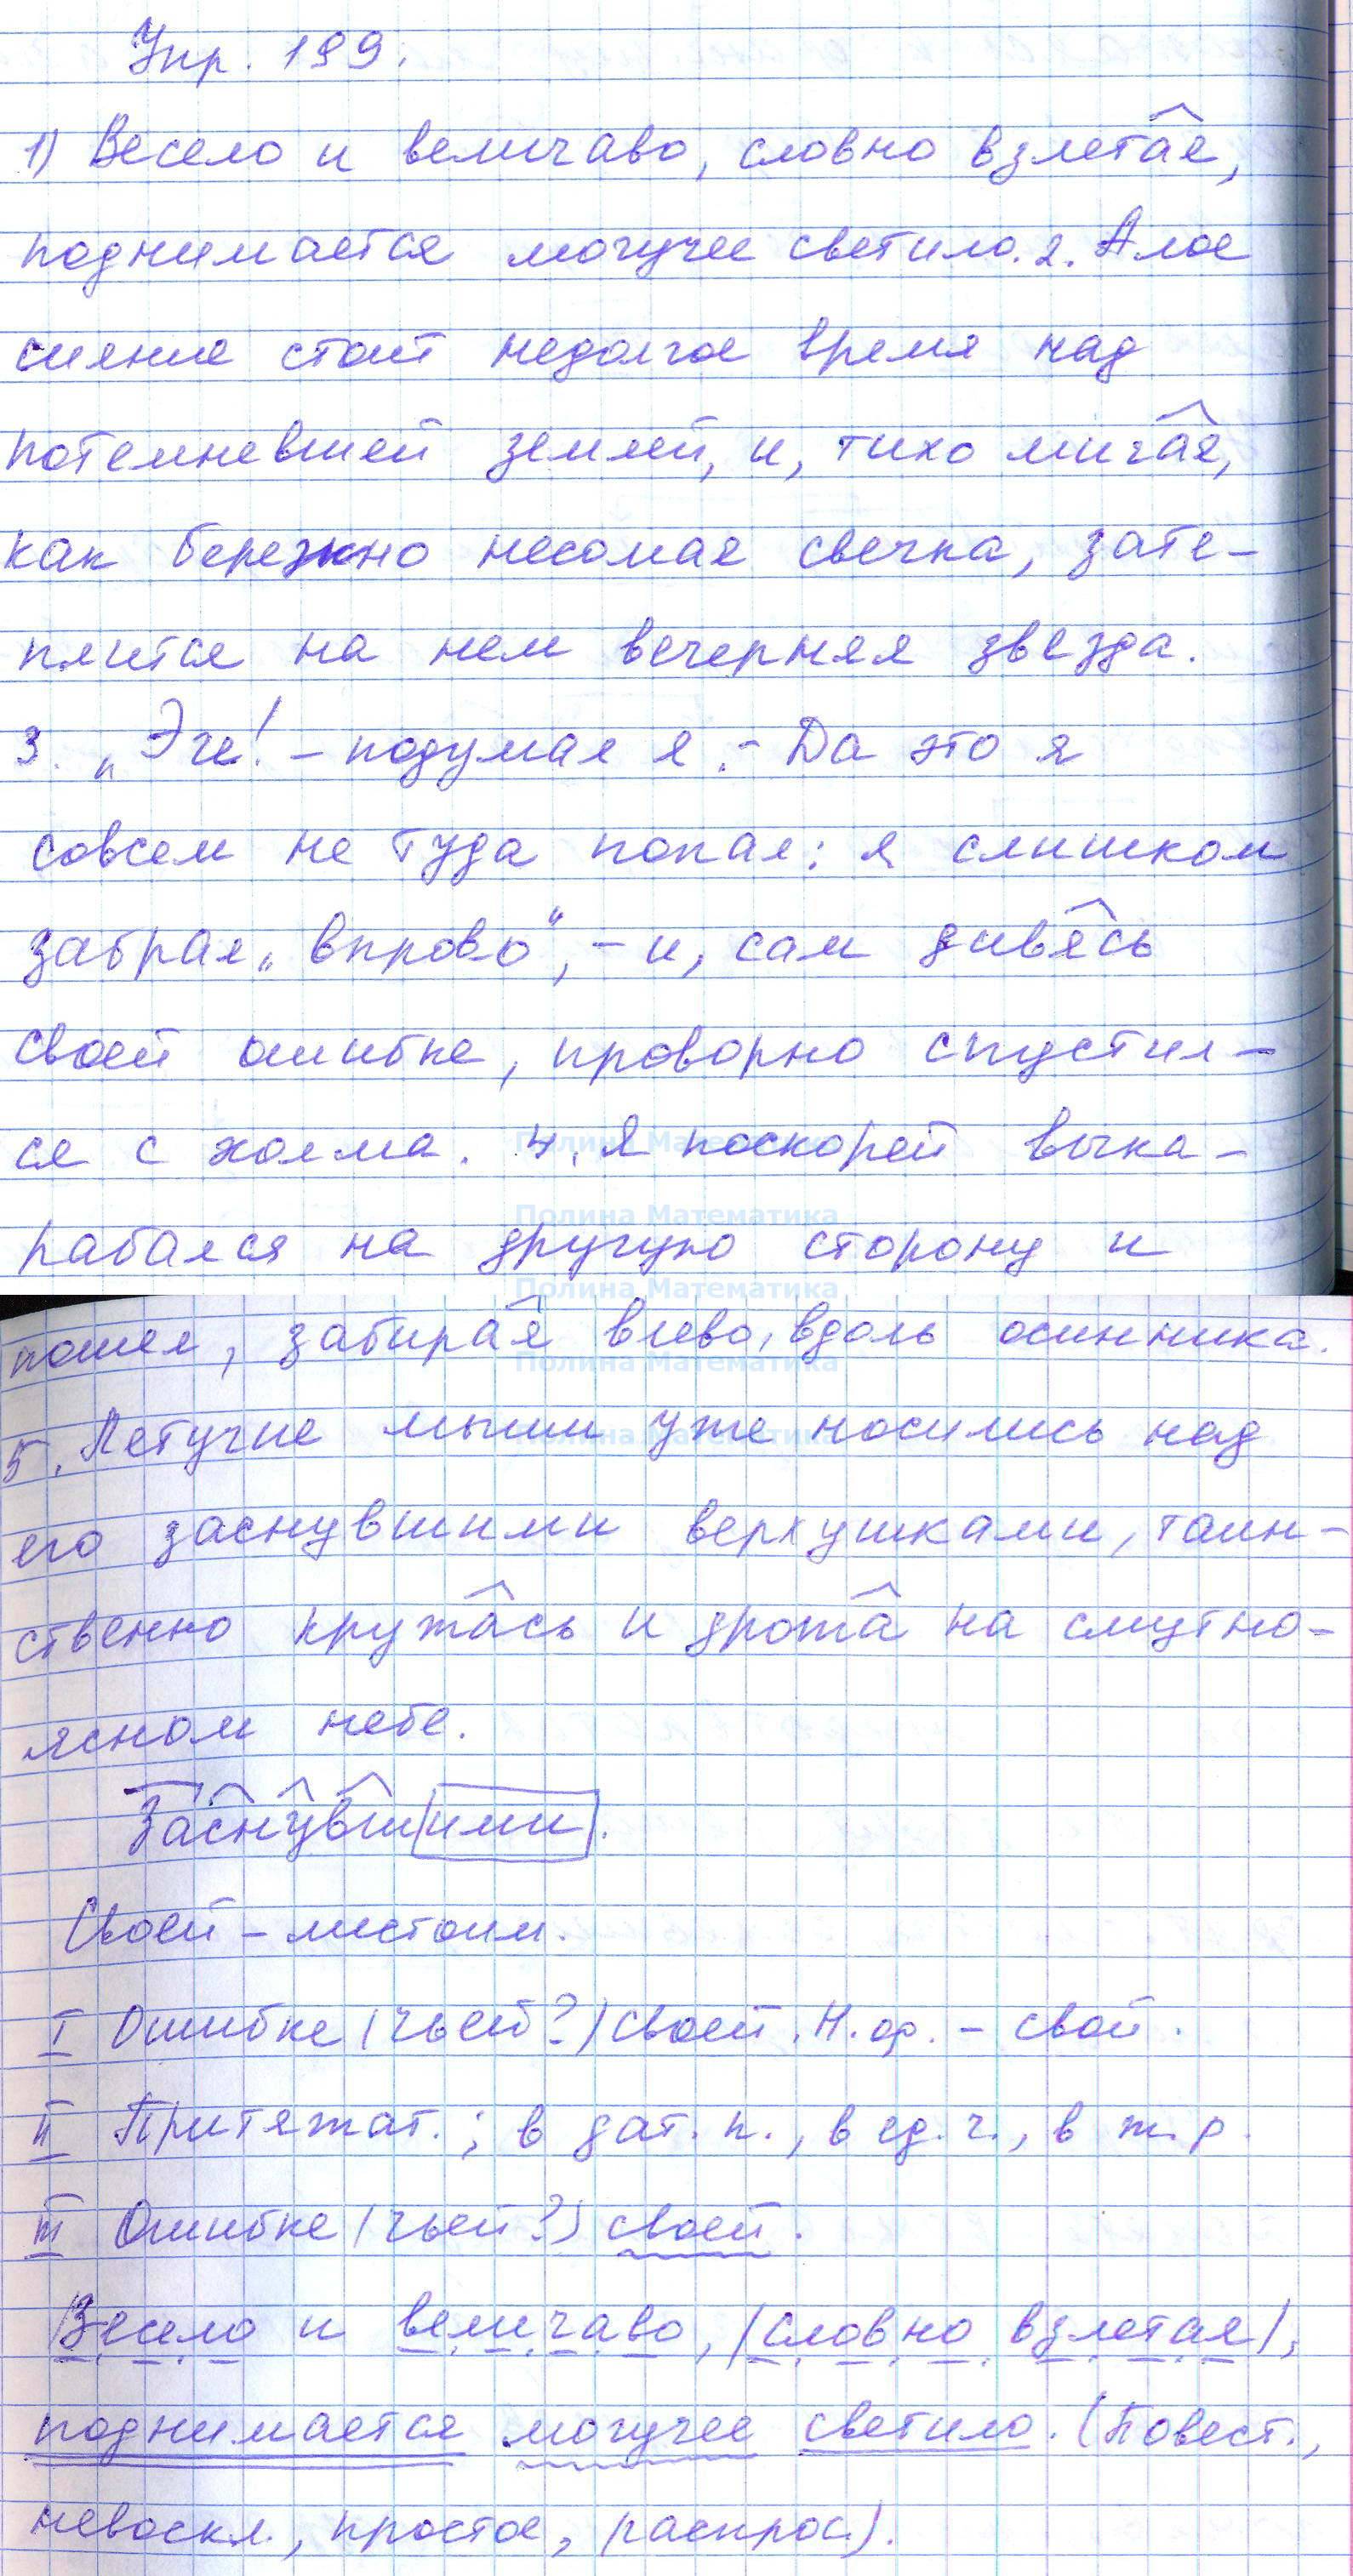 Упр. 199.
1) Весело и величаво, словно взлетая,
поднимается могучее светило. 2. Алое
сияние стоит недолгое время над
потемневшей землей, и, тихо мигая,
как бережно несомая свечка, зате-
плится на нем вечерняя звезда.
3. „Эге! – подумал я. – Да это я
совсем не туда попал: я слишком
забрал „вправо“, – и, сам дивясь
своей ошибке, проворно спустил-
ся с холма. 4. Я поскорей выка-
Полина Математика
Полина Математика
рабался на другую сторону и
Полина Математика
пошел, забирая влево, вдоль осинника.
Полина Математика
5. Летучие мыши уже носились над
Полина Математика
его заснувшими верхушками, таин-
ственно кружась и дрожа на смутно-
ясном небе.
Заснувшими.
Своей – местоим.
I Ошибке (чьей?) своей. Н.ф. – свой.
II Притяжат.; в дат. п., в ед. ч., в ж. р.
III Ошибке (чьей?) своей.
Весело и величаво, |словно взлетая|,
поднимается могучее светило. (Повест.,
невоскл., простое, распрос.).